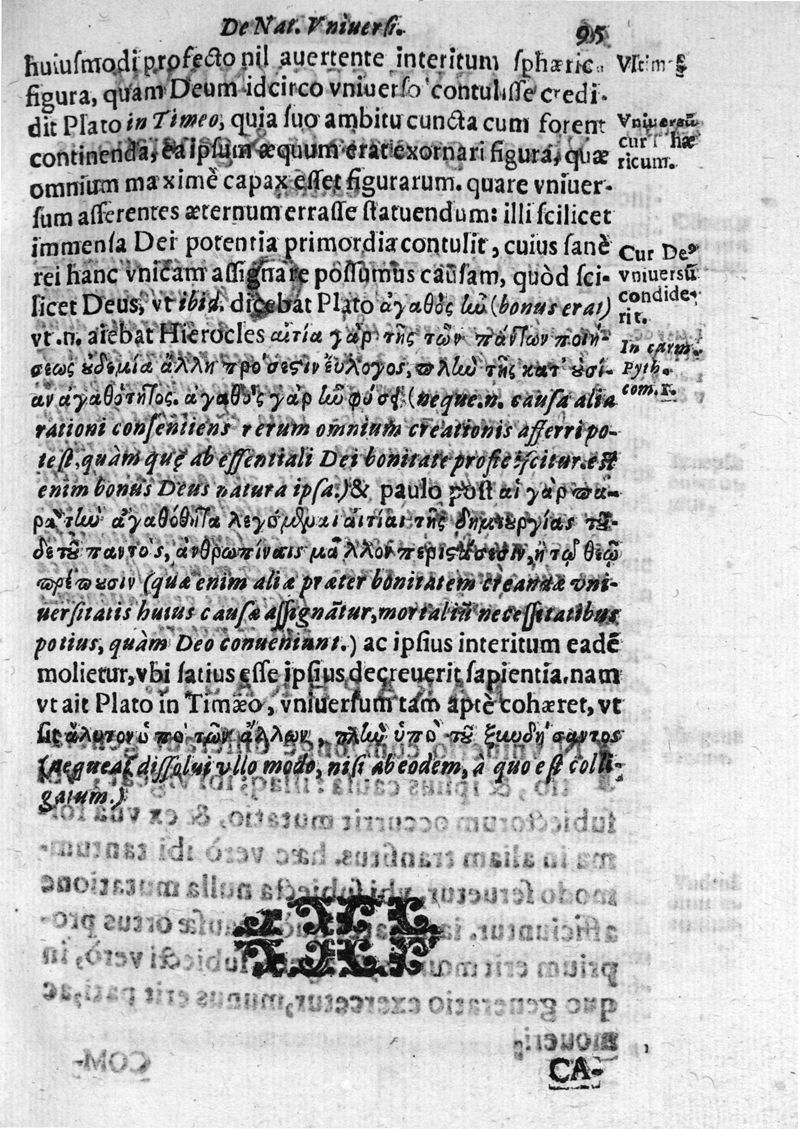 De Nat. Vniuersi. 95
huiusmodi profecto nil auertente interitum sphæric
figura, quam Deum idcirco vniuerso contulisse credi-
dit Plato in Timeo, quia suo ambitu cuncta cum forent
continenda, ea ipsum æquum erat exornari figura, quæ
omnium maximè capax esset figurarum. quare vniuer-
sum asserentes æternum errasse statuendum: illi scilicet
immensa Dei potentia primordia contulit, cuius sanè
rei hanc vnicam assignare possumus causam, quòd sci-
licet Deus, vt ibid. dicebat Plato ἀγαθὸς ἰὼ (bonus erat)
vt.n. aiebat Hierocles αἰτία γὰρ τῆς τῶν πάντων ποιή-
σεως ὐδεμία ἄλλη πρόσεςιν ἔυλογος, πλιὼ τῆς κατ' ὐσί-
αν ἀγαθότητος. ἀγαθὸς γὰρ ἰὼ φύσει (neque.n. causa alia
rationi consentiens rerum omnium creationis afferri po-
test, quàm quę ab essentiali Dei bonitate proficiscitur. est
enim bonus Deus natura ipsa.) & paulo post αἱ γὰρ πα-
ρὰ τιὼ ἀγαθότητα λεγόμβραι αἰτίαι τῆς δημιυργίας τῦ-
δε τῦ παντὸς, ἀνθρωπίναις μᾶλλον περιςάσεσιν, ἢ τῷ θεῷ
πρέπυσιν (quæ enim aliæ præter bonitatem creandæ vni-
uersitatis huius causæ assignãtur, mortaliũ necessitatibus
potius, quàm Deo conueniunt.) ac ipsius interitum eadē
molietur, vbi satius esse ipsius decreuerit sapientia. nam
vt ait Plato in Timæo, vniuersum tam aptè cohæret, vt
sit ἄλυτον ὑπὸ τῶν ἄλλων, πλιὼ ὑπὸ τῦ ξυνδήσαντος
(nequeat dissolui vllo modo, nisi ab eodem, à quo est colli-
gatum.)
CA-
Vniuersũ
cur sphæ
ricum.
Cur De9
vniuersũ
condide-
rit.
In carm.
Pyth.
com. 1.
COM-